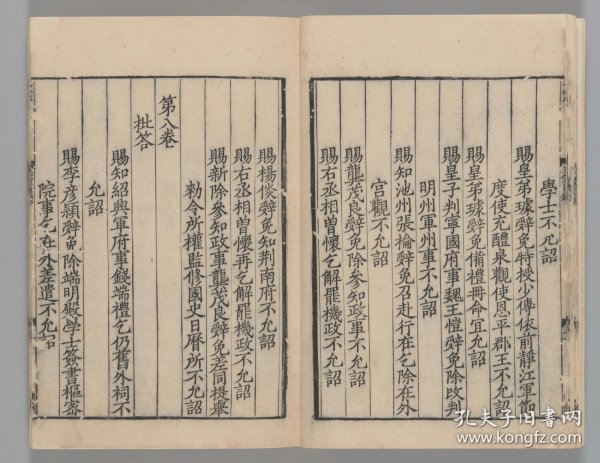 學士不允詔
賜皇弟璩辭免特授少傅依前靜江軍節
度使充醴泉觀使恩平郡王不允詔
賜皇弟璩辭免備禮冊命宜允詔
賜皇子判寧國府事魏王愷辭免除改判
明州軍州事不允詔
賜知池州張掄辭免召赴行在乞除在外
宮觀不允詔
賜龔茂良辭免除參知政事不允詔
賜右丞相曾懷乞解罷機政不允詔
賜楊倓辭免知荆南府不允詔
賜右丞相曾懷再乞解罷機政不允詔
賜新除參知政事龔茂良辭免差同提舉
勑令所權監修國史日曆所不允詔
第八卷
批答
賜知紹興軍府事錢端禮乞仍舊外祠不
允詔
賜李彥穎辭免除端明殿學士簽書樞密
院事乞在外差遣不允詔
孔夫子旧书网
www.kongfz.com